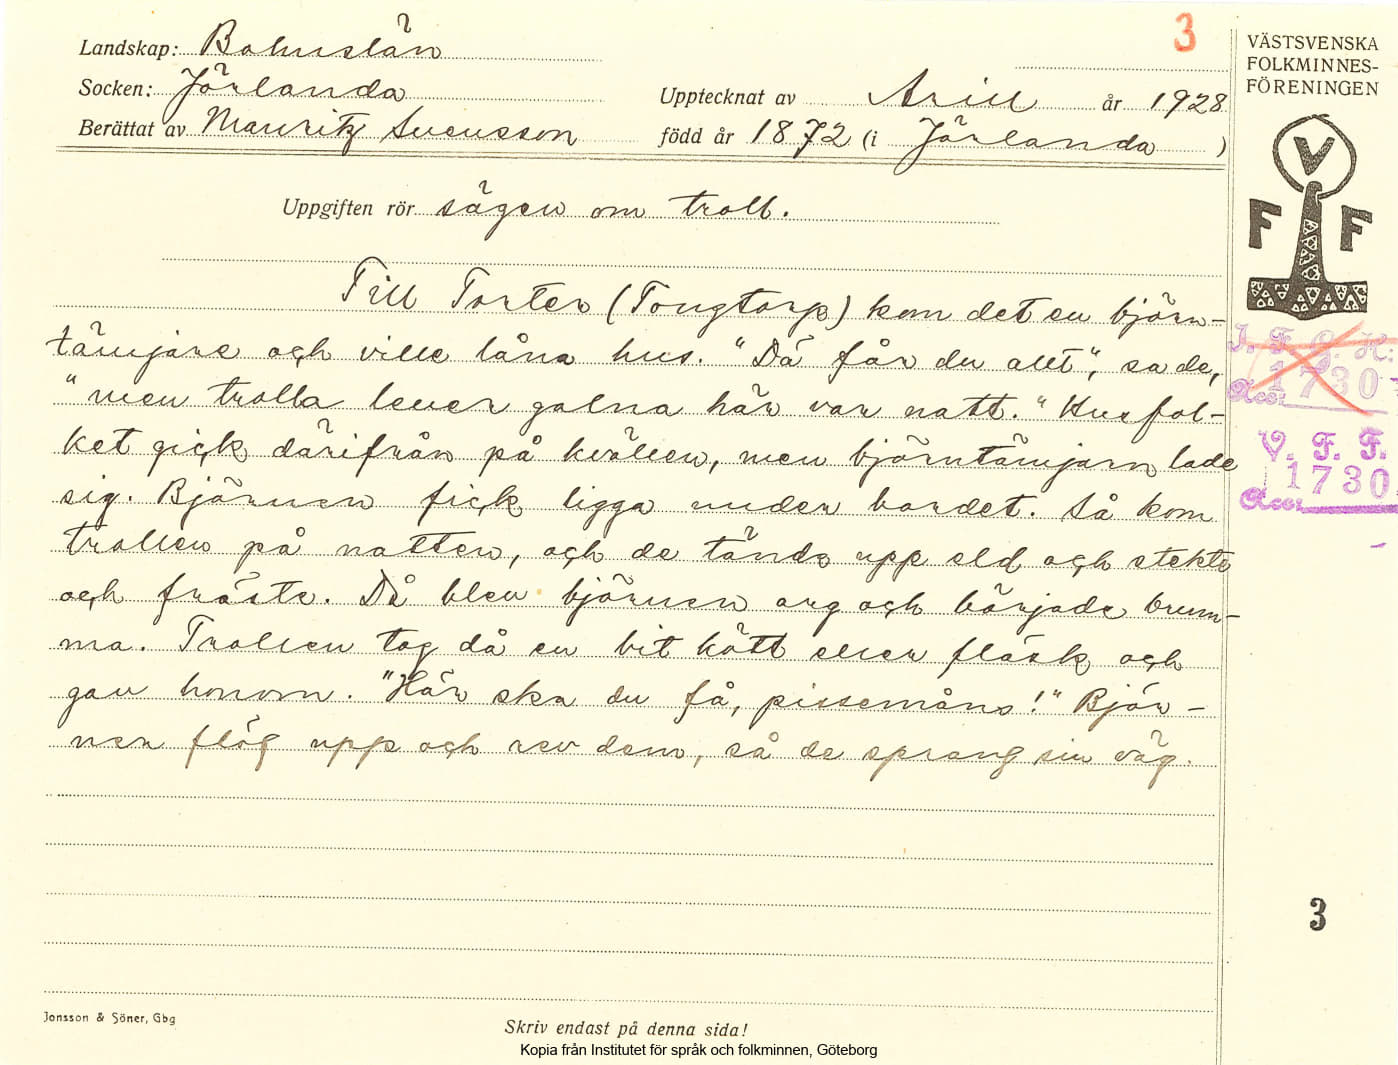 Landskap: Bohuslän
Socken: Jörlanda
Berättat av Mauritz Svensson
3
Upptecknat av Arill år 1928
född år 1872 (i Jörlanda )
Uppgiften rör sägen om troll.
Till Torter (Tongtorp) kom det en björn-
tämjare och ville låna hus. "Dä får du allt", sa de,
"men trolla lever galna här var natt." Husfol-
ket gick därifrån på kvällen, men björntämjarn lade
sig. Björnen fick ligga under bordet. Så kom
trollen på natten, och de tände upp eld och stekte
och fräste. Då blev björnen arg och började brum-
ma. Trollen tog då en bit kött eller fläsk och
gav honom. "Här ska du få, pissemåns!" Björ-
nen flög upp och rev dem, så de sprang sin väg.
Jonsson & Söner, Gbg
Skriv endast på denna sida!
Kopia från Institutet för språk och folkminnen, Göteborg
VÄSTSVENSKA
FOLKMINNES-
FÖRENINGEN
V
F F
I. F. G. H.
Acc. 1730
V. F. F.
Acc. 1730
3